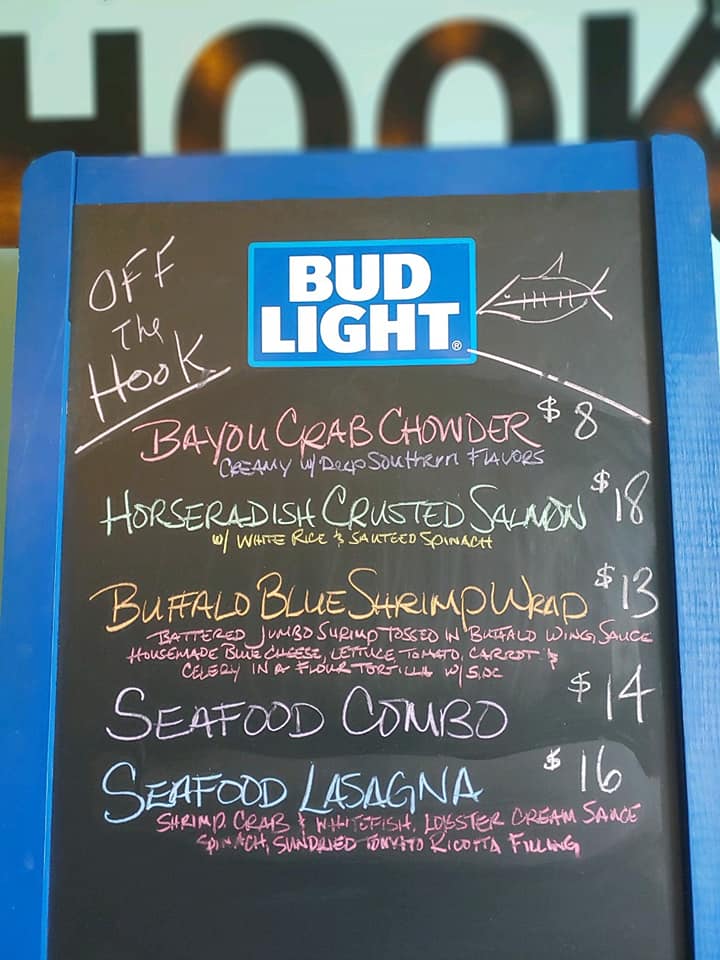 HOOK
OFF
The
HOOK
BUD
LIGHT®
BAYOU CRAB CHOWDER $8
CREAMY w/ Deep Southern FLAVORS
HORSERADISH CRUSTED SALMON $18
w/ WHITE RICE & SAUTEED SPINACH
BUFFALO BLUE SHRIMP WRAP $13
BATTERED JUMBO SHRIMP TOSSED IN BUFFALO WING SAUCE
HOUSEMADE BLUE CHEESE, LETTUCE TOMATO, CARROT &
CELERY IN A FLOUR TORTILLA w/ SIDE
SEAFOOD COMBO $14
SEAFOOD LASAGNA $16
SHRIMP, CRAB & WHITEFISH, LOBSTER CREAM SAUCE
SPINACH, SUNDRIED TOMATO RICOTTA FILLING